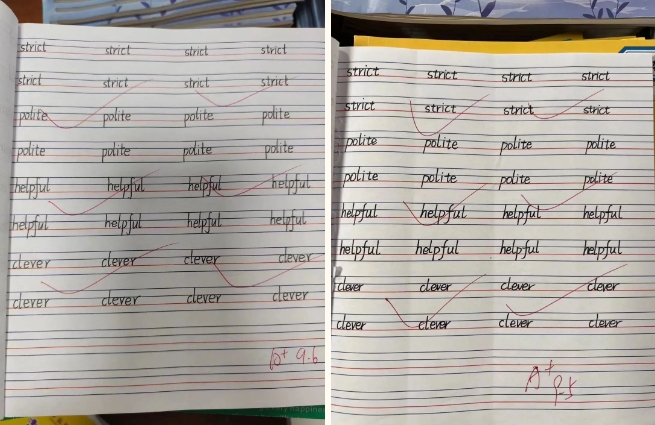 strict strict strict strict
strict strict strict strict
polite polite polite polite
polite polite polite polite
helpful helpful helpful helpful
helpful helpful helpful helpful
clever clever clever clever
clever clever clever clever
A+ 9.6
strict strict strict strict
strict strict strict strict
polite polite polite polite
polite polite polite polite
helpful helpful helpful helpful
helpful helpful helpful helpful
clever clever clever clever
clever clever clever clever
A+
9.5